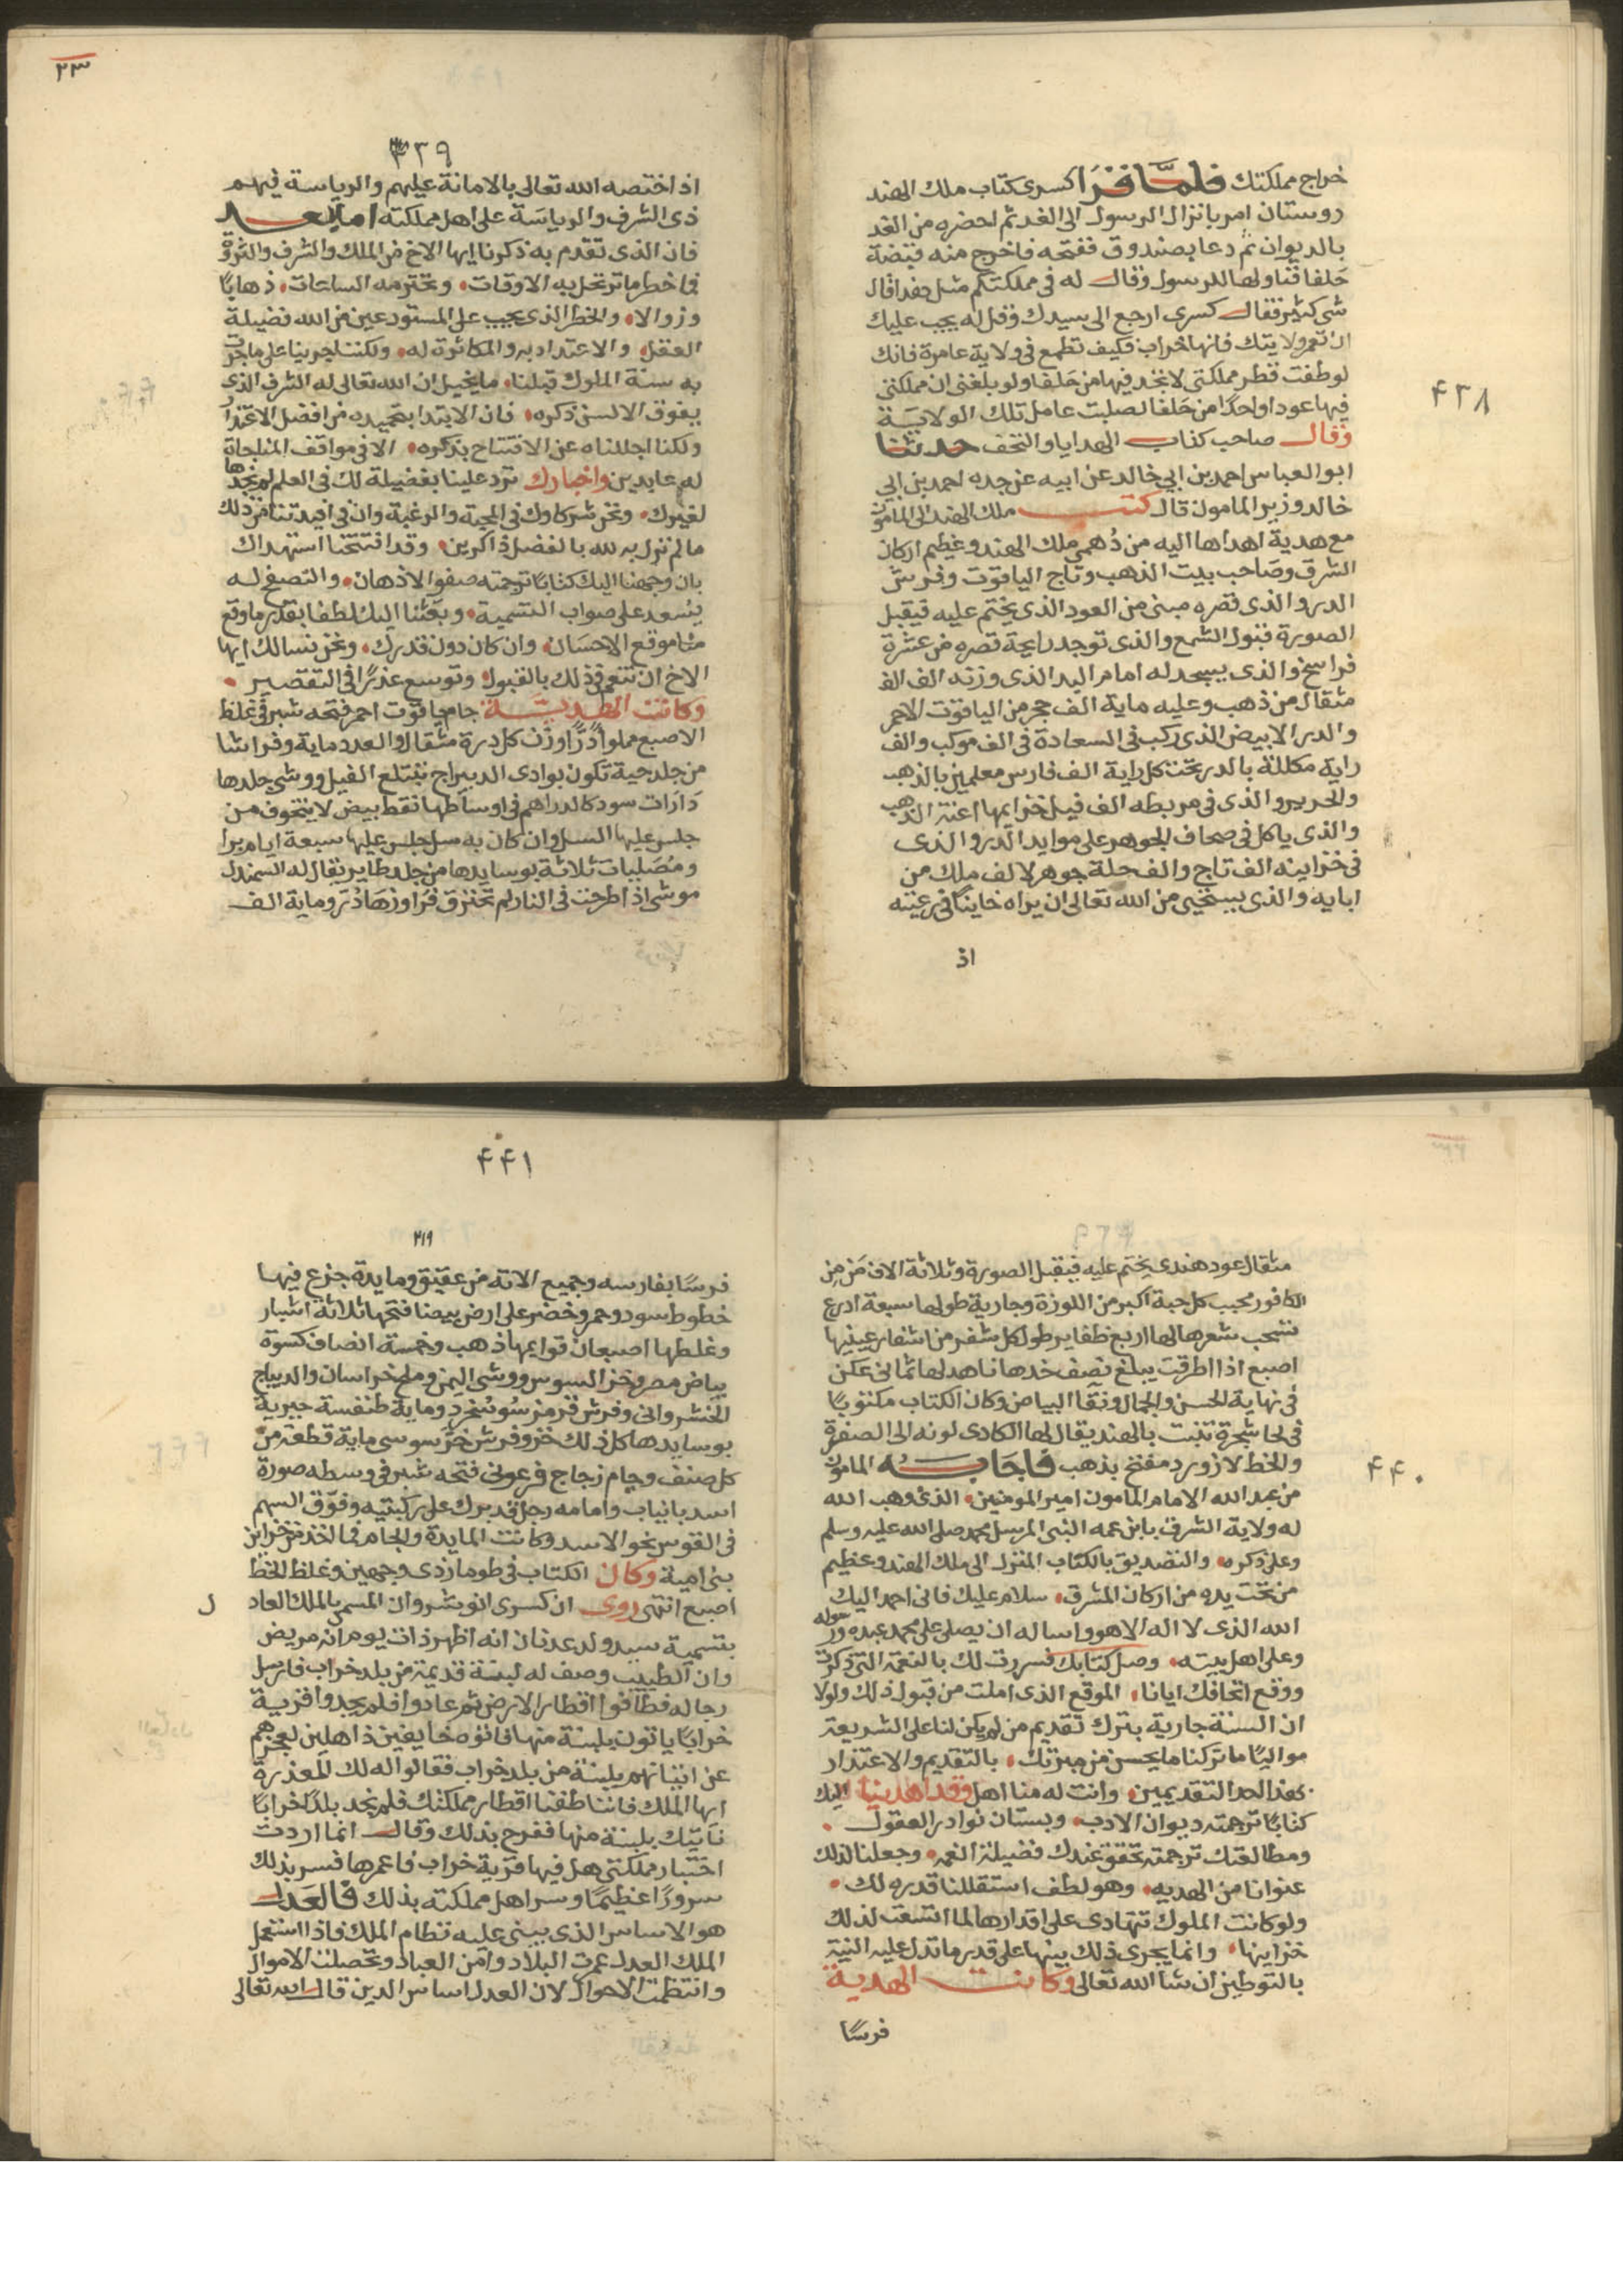 ٤٣٨
خراج مملكتك فلما قرا كسرى كتاب ملك الهند
روستان امر بانزال الرسول الى الغد ثم احضره من الغد
بالديوان ثم دعا بصندوق ففتحه فاخرج منه قبضة
حلفا فناولها للرسول وقال له فى مملكتكم مثل هذا قال
شى كثير فقال كسرى ارجع الى سيدك وقل له يجب عليك
ان تعمر ولايتك فانها خراب فكيف تطمع فى ولاية عامرة فانك
لو طفت قطر مملكتى لا تجد فيها من حلفا ولو بلغنى ان مملكتى
فيها عودا واحدا من حلفا لصلبت عامل تلك الولاية
وقال صاحب كتاب الهدايا والتحف حدثنا
ابو العباس احمد بن ابي خالد عن ابيه عن جده احمد بن ابي
خالد وزير المامون قال كتب ملك الهند الى المامون
مع هدية اهداها اليه من دهمى ملك الهند وعظيم اركان
الشرق وصاحب بيت الذهب وتاج الياقوت وفرش
الدر والذى قصره مبنى من العود الذى يختم عليه فيقبل
الصورة قبول الشمع والذى توجد رايحة قصره من عشرة
فراسخ والذى يسجد له امام البد الذى وزنه الف الف
مثقال من ذهب وعليه ماية الف حجر من الياقوت الاحمر
والدر الابيض الذى ركب فى السعادة فى الف موكب والف
راية مكللة بالدر تحت كل راية الف فارس معلمين بالذهب
والحرير والذى فى مربطه الف فيل خزايمها اعنة الذهب
والذى ياكل فى صحاف الجوهر على موايد الدر والذى
فى خزاينه الف تاج والف حلة جوهر لالف ملك من
ابايه والذى يستحيى من الله تعالى ان يراه خاينا فى رعيته
اذ
٢٣
٤٣٩
اذ اختصه الله تعالى بالامانة عليهم والرياسة فيهم
ذى الشرف والرياسة على اهل مملكته اما بعد
فان الذى تقدم به ذكرنا ايها الاخ من الملك والشرف والثروة
فما خطر ما ترتحل به الاوقات وتخترمه الساعات ذهابا
وزوالا والخطر الذى يجب على المستودعين من الله فضيلة
العقل والاعتداد به والمكاثرة له ولكننا جرينا على ما جرت
به سنة الملوك قبلنا ما يخيل ان الله تعالى له الشرف الذى
يفوق الالسن ذكره فان الابتدا بتمجيده من افضل الاعتذار
ولكنا اجللناه عن الافتتاح بذكره الا فى مواقف المناجاة
له عابدين واخبارك ترد علينا بفضيلة لك فى العلم لم نجدها
لغيرك ونحن شركاوك فى المحبة والرغبة وان فى افيدتنا من ذلك
ما لم نزل به لله بالفضل ذاكرين وقد افتتحنا استهداك
بان وجهنا اليك كتابا ترجمته صفو الاذهان والتصفح له
يسعد على صواب التسمية وبعثنا اليك لطفا بقدر ما وقع
منا موقع الاحسان وان كان دون قدرك ونحن نسالك ايها
الاخ ان تنعم فى ذلك بالقبول وتوسع عذرا فى التقصير
وكانت الهدية جام ياقوت احمر فتحه شبر فى غلظ
الاصبع مملوا درا وزن كل درة مثقال والعدد ماية وفراشا
من جلد حية تكون بوادى الديراج تبتلع الفيل ووشى جلدها
دارات سود كالدراهم فى اوساطها نقط بيض لا يتخوف من
جلس عليها السل وان كان به سل جلس عليها سبعة ايام يرا
ومصليات ثلاثة بوسايدها من جلد طاير يقال له السمندل
موشى اذا طرحت فى النار لم تحترق فراوزها در وماية الف
٤٤٠
مثقال عود هندى يختم عليه فيقبل الصورة وثلاثة الاف من من
الكافور محبب كل حبة اكبر من اللوزة وجارية طولها سبعة اذرع
تسحب شعرها لها اربع ظفاير طول كل شفر من اشفار عينيها
اصبع اذا اطرقت يبلغ نصف خدها ناهد لها ثمانى عكن
فى نهاية الحسن والجمال ونقا البياض وكان الكتاب مكتوبا
فى لحا شجرة تنبت بالهند يقال لها الكادى لونه الى الصفرة
والخط لازورد مفتح بذهب فاجابه المامون
من عبد الله الامام المامون امير المومنين الذى وهب الله
له ولاية الشرف بابن عمه النبى المرسل محمد صلى الله عليه وسلم
وعلى ذكره والتصديق بالكتاب المنزل الى ملك الهند وعظيم
من تحت يده من اركان المشرق سلام عليك فانى احمد اليك
الله الذى لا اله الا هو واساله ان يصلى على محمد عبده ورسوله
وعلى اهل بيته وصل كتابك فسررت لك بالنعمة التى ذكرت
ووقع اتحافك ايانا الموقع الذى املت من قبول ذلك ولولا
ان السنة جارية بترك تقديم من لم يكن لنا على الشريعة
مواليا ما تركنا ما يحسن من مبرتك بالتقديم والاعتذار
بهذا احد التقديمين وانت له منا اهل وقد اهدينا اليك
كتابا ترجمته ديوان الادب وبستان نوادر العقول
ومطالعتك ترجمته تحقق عندك فضيلة النعمة وجعلنا لذلك
عنوانا من الهديه وهو لطف استقللنا قدره لك
ولو كانت الملوك تتهادى على اقدارها لما اتسعت لذلك
خزاينها وانما يجرى ذلك بينها على قدر ما تدل عليه النية
بالتوطين ان شا الله تعالى وكانت الهدية
فرسا
٤٤١
٢١٩
فرسا بفارسه وجميع الاته من عقيق ومايدة جزع فيها
خطوط سود وحمر وخضر على ارض بيضا فتحها ثلاثة اشبار
وغلظها اصبعان قوايمها ذهب وخمسة انصاف كسوة
بياض مصر وخز السوس ووشى اليمن وملح خراسان والديباج
الخسروانى وفرش قرمز سوسنجرد وماية طنفسة حيرية
بوسايدها كل ذلك خز وفرش خز سوسى ماية قطعة من
كل صنف وجام زجاج فرعونى فتحه شبر فى وسطه صورة
اسد بانياب وامامه رجل قد برك على ركبتيه وفوق السهم
فى القوس نحو الاسد وكانت المايدة والجام مما اتخذ من خزاين
بنى امية وكان الكتاب فى طومار ذى وجهين وغلظ الخط
اصبع انتهى روى ان كسرى انوشروان المسمى بالملك العاد
ل
بتسمية سيد ولد عدنان انه اظهر ذات يوم انه مريض
وان الطبيب وصف له لبنة قديمة من بلد خراب فارسل
رجاله فطافوا اقطار الارض ثم عادوا فلم يجدوا قرية
خرابا ياتون بلبنة منها فاتوه خايفين ذاهلين لعجزهم
عن اتيانهم بلبنة من بلد خراب فقالوا له لك المعذرة
ايها الملك فاننا طفنا اقطار مملكتك فلم نجد بلدا خرابا
ناتيك بلبنة منها ففرح بذلك وقال انما اردت
اختبار مملكتى هل فيها قرية خراب فاعمرها فسر بذلك
سرورا عظيما وسر اهل مملكته بذلك فالعدل
هو الاساس الذى يبنى عليه نظام الملك فاذا استعمل
الملك العدل عمرت البلاد وامن العباد وتحصلت الاموال
وانتظمت الاحوال لان العدل اساس الدين قال الله تعالى